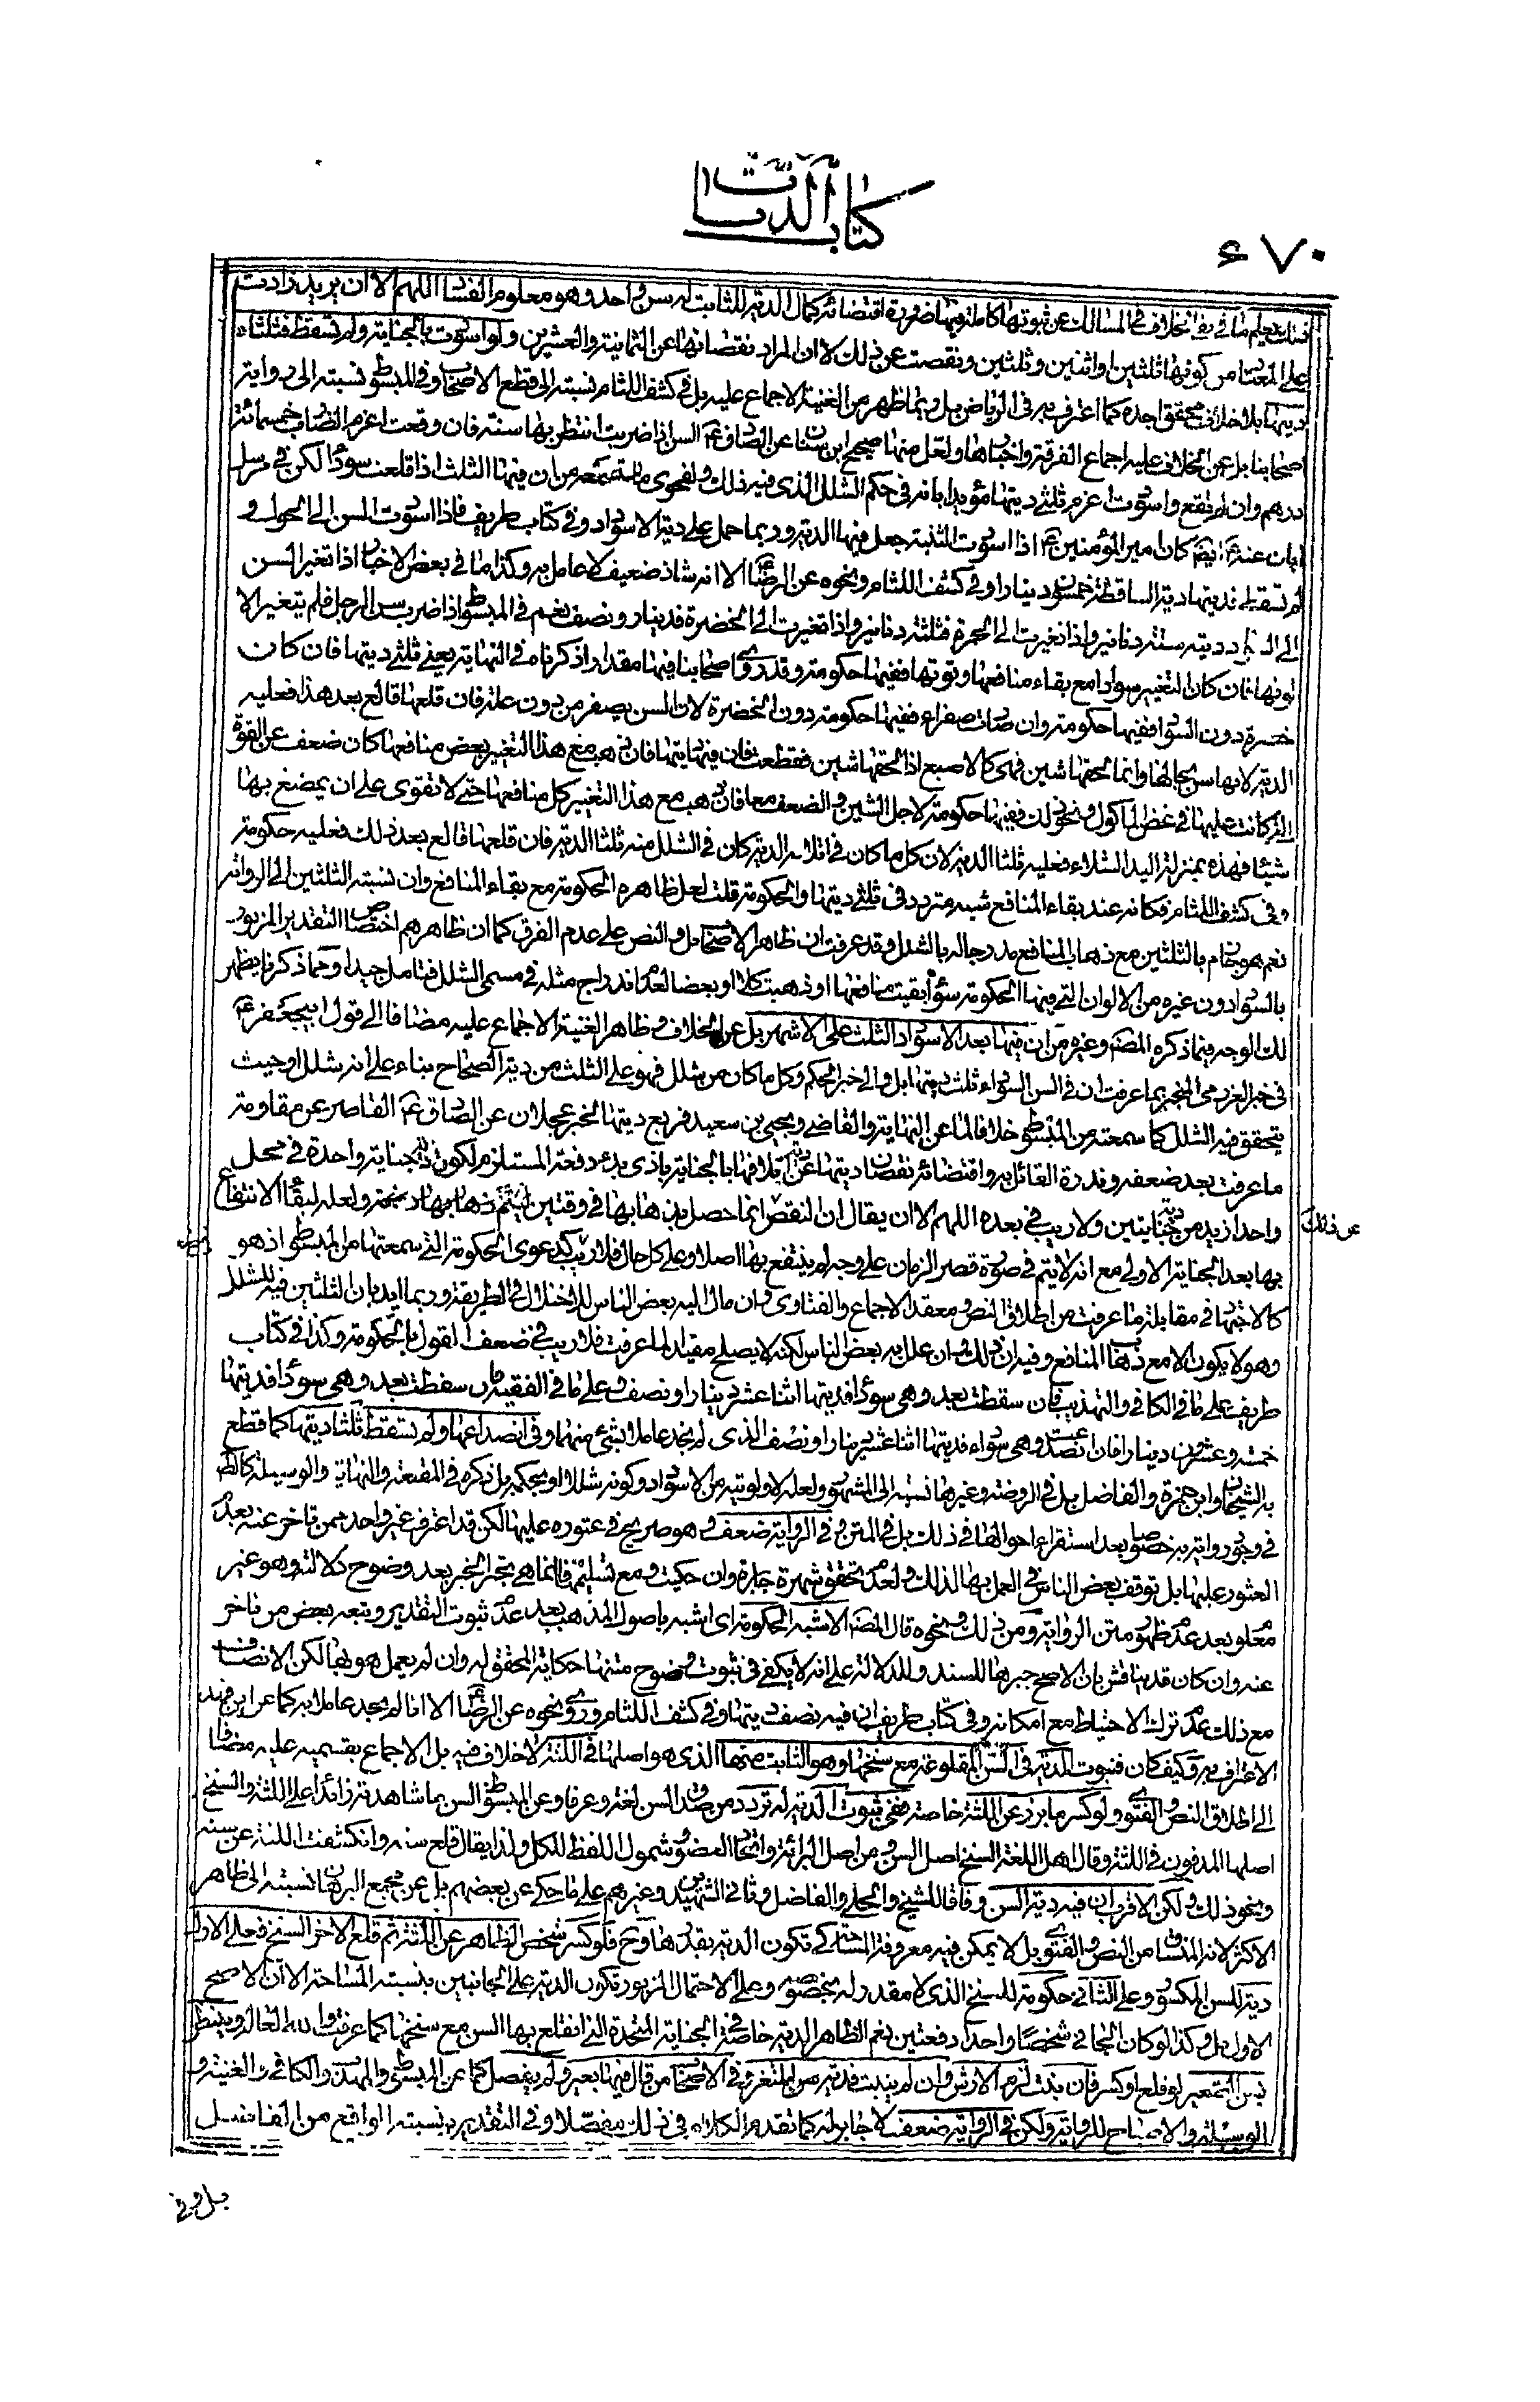 كتاب الديات
٦٧٠
يعلم ما في نفي الخلاف في المسالك عن ثبوتها كاملة فيها ضرورة اقتضائه كمال الدية للثابت له سن واحد وهو معلوم الفساد اللهم الا ان يريد زادت
على المعتاد من كونها ثلثين او اثنين وثلثين ونقصت عن ذلك لا ان المراد نقصانها عن الثمانية والعشرين ولو اسودت بالجناية ولم تسقط فثلثاء
ديتها بلا خلاف محقق اجده كما اعترف به في الرياض بل ربما ظهر من الغنية الاجماع عليه بل في كشف اللثام نسبته الى قطع الاصحاب وفي المبسوط نسبته الى رواية
اصحابنا بل عن الخلاف عليه اجماع الفرقة واخبارها ولعل منها صحيح ابن سنان عن الصادق ع السن اذا ضربت انتظر بها سنة فان وقعت اغرم الضارب خمسمائة
درهم وان لم تقع واسودت اغرم ثلثي ديتها مؤيدا بانه في حكم الشلل الذي فيه ذلك ولفحوى ما من ان فيها الثلث اذا قلعت سوداء لكن في مرسل
ابان عنه ع ايضا كان امير المؤمنين ع اذا اسودت الثنية جعل فيها الدية وربما حمل على دية الاسوداد وفي كتاب ظريف فاذا اسودت السن الى الحول و
لم تسقط فديتها دية الساقطة خمسون دينارا وفي كشف اللثام ونحوه عن الرضا ع الا انه شاذ ضعيف لا عامل به وكذا ما في بعض الاخبار اذا تغير السن
الى السواد ديته ستة دنانير واذا تغيرت الى الحمرة فثلثة دنانير واذا تغيرت الى الخضرة فدينار ونصف نعم في المبسوط اذا ضرب سن الرجل فلم يتغير الا
لونها فان كان التغير سوادا مع بقاء منافعها وقوتها ففيها حكومة وقد روى اصحابنا فيها مقدرا ذكرناه في النهاية يعني ثلثي ديتها فان كان
خضرة دون السواد ففيها حكومة وان صارت صفراء ففيها حكومة دون الخضرة لان السن يصفر من دون علة فان قلعها قالع بعد هذا فعليه
الدية لانها سن بحالها وانما لحقها شين فهي كالاصبع اذا لحقها شين فقطعت فان فيها ديتها فان ذهب مع هذا التغير بعض منافعها كان ضعف عن القوة
التي كانت عليها في عض المأكول ونحو ذلك ففيها حكومة لاجل الشين والضعف معا فان ذهب مع هذا التغير كل منافعها حتى لا تقوى على ان يمضغ بها
شيئا فهذه بمنزلة اليد الشلاء فعليه ثلثا الدية لان كل ما كان في اتلافه الدية كان في الشلل منه ثلثا الدية فان قلعها قالع بعد ذلك فعليه حكومة
وفي كشف اللثام فكانه عند بقاء المنافع شبه متردد في ثلثي ديتها والحكومة قلت لعل ظاهره الحكومة مع بقاء المنافع وان نسبته الثلثين الى الرواية
نعم هو جازم بالثلثين مع ذهاب المنافع مدرجا له بالشلل وقد عرفت ان ظاهر الاصحاب بل والنص على عدم الفرق كما ان ظاهرهم اختصاص التقدير المزبور
بالسواد دون غيره من الالوان التي فيها الحكومة سواء بقيت منافعها او ذهبت كلا او بعضا لعدم اندراج مثله في مسمى الشلل فتامل جيدا ومما ذكرنا يظهر
لك الوجه فيما ذكره المصنف وغيره من ان فيها بعد الاسوداد الثلث على الاشهر بل عن الخلاف وظاهر الغنية الاجماع عليه مضافا الى قول ابي جعفر ع
في خبر العزرمي المنجبر بما عرفت ان في السن السوداء ثلث ديتها بل والى خبر الحكم وكل ما كان من شلل فهو على الثلث من دية الصحاح بناء على انه شلل او حيث
يتحقق فيه الشلل كما سمعته من المبسوط خلافا لما عن النهاية والقاضي ويحيى بن سعيد فربع ديتها لخبر عجلان عن الصادق ع القاصر عن مقاومة
ما عرفت بعد ضعفه وندرة القائل به واقتضائه نقصان ديتها عن دية اتلافها بالجناية بادى بدء دفعة المستلزم لكون دية جناية واحدة في محل
واحد ازيد من دية جنايتين ولا ريب في بعده اللهم الا ان يقال ان النقص انما حصل بذهابها في وقتين ذهابها دفعة ولعله لبقاء الانتفاع
عن ذلك
بها بعد الجناية الاولى مع انه لا يتم في صورة قصر الزمان على وجه لم ينتفع بها اصلا وعلى كل حال فلا ريب دعوى الحكومة التي سمعتها من المبسوط اذ هو
كالاجتهاد في مقابلة ما عرفت من اطلاق النص ومعقد الاجماع والفتاوى وان مال اليه بعض الناس للاختلال في الطريقة وربما ايد بان الثلثين فيه للشلل
وهو لا يكون الا مع ذهاب المنافع وفيه ان ذلك وان علل به بعض الناس لكنه لا يصلح مقيدا لما عرفت فلا ريب في ضعف القول بالحكومة وكذا في كتاب
ظريف على ما في الكافي والتهذيب فان سقطت بعد وهي سوداء فديتها اثنا عشر دينارا ونصف وعلى ما في الفقيه فان سقطت بعد وهي سوداء فديتها
خمسة وعشرون دينارا فان انصدعت وهي سوداء فديتها اثنا عشر دينارا ونصف الذي لم نجد عاملا بشيء منهما وفي انصداعها ولم تسقط ثلثا ديتها كما قطع
به الشيخان وابن حمزة والفاضل بل في الروضة وغيرها نسبته الى المشهور ولعله لاولويته من الاسوداد وكونه شللا او بحكمه بل ذكره في المقنعة والنهاية والوسيلة كالنص
في وجود رواية به خصوصا بعد استقراء احوالها في ذلك بل في المتن وفي الرواية ضعف وهو صريح في عثوره عليها لكن قد اعترف غير واحد ممن تاخر عنه بعدم
العثور عليها بل توقف بعض الناس في العمل بها لذلك ولعدم تحقق شهرة جابرة وان حكيت ومع تسليمها فانما هي تجبر الخبر بعد وضوح دلالته وهو غير
معلوم بعد عدم ظهور متن الرواية ومن ذلك ونحوه قال المصنف الاشبه الحكومة اي اشبه باصول المذهب بعد عدم ثبوت التقدير وتبعه بعض من تاخر
عنه وان كان قد يناقش بان الاصح جبرها للسند وللدلالة على انه لا يكفي في ثبوت وضوح متنها حكاية المحقق له وان لم يعمل هو بها لكن الانصاف
مع ذلك عدم ترك الاحتياط مع امكانه وفي كتاب ظريف ان فيه نصف ديتها وفي كشف اللثام وروي نحوه عن الرضا ع الا انا لم نجد عاملا به كما عن ابن فهد
الاعتراف به وكيف كان فثبوت الدية في السن المقلوعة مع سنخها وهو الثابت منها الذي هو اصلها في اللثة لا خلاف فيه بل الاجماع بقسميه عليه مضافا
الى اطلاق النص والفتوى ولو كسر ما برز عن اللثة خاصة ففي ثبوت الدية له تردد من صدق السن لغة وعرفا وعن المبسوط السن بما شاهدته زائدا على اللثة والسنخ
اصلها المدفون في اللثة وقال اهل اللغة السنخ اصل السن ومن اصل البرائة واتحاد العضو وشمول اللفظ للكل ولذا يقال قلع سنه وانكشفت اللثة عن سنه
ونحو ذلك ولكن الاقرب ان فيه دية السن وفاقا للشيخ والحلي والفاضل وثاني الشهيدين وغيرهم على ما حكي عن بعضهم بل عن مجمع البرهان نسبته الى ظاهر
الاكثر لانه المنساق من النص والفتوى بل لا يمكن فيه معرفة المساحة كي تكون الدية بقدرها وح فلو كسر شخص الظاهر عن اللثة ثم قلع الاخر السنخ فعلى الاول
دية السن المكسور وعلى الثاني حكومة للسنخ الذي لا مقدر له بخصوصه وعلى الاحتمال المزبور تكون الدية على الجانيين بنسبة المساحة الا ان الاصح
الاول بل وكذا لو كان الجاني شخصا واحدا دفعتين نعم الظاهر الدية خاصة في الجناية المتحدة التي انقلع بها السن مع سنخها كما عرفت والله العالم وينتظر
بسن الصغير لو قلع او كسر فان نبت لزم الارش وان لم ينبت فدية سن المثغر وفي الاصحاب من قال فيها بعير ولم يفصل كما عن المبسوط والمهذب والكافي والغنية و
الوسيلة والاصباح للرواية ولكن في الرواية ضعف لا جابر له كما تقدم الكلام في ذلك مفصلا وفي التقدير بنسبته الواقع من الفاضل
بل وفي